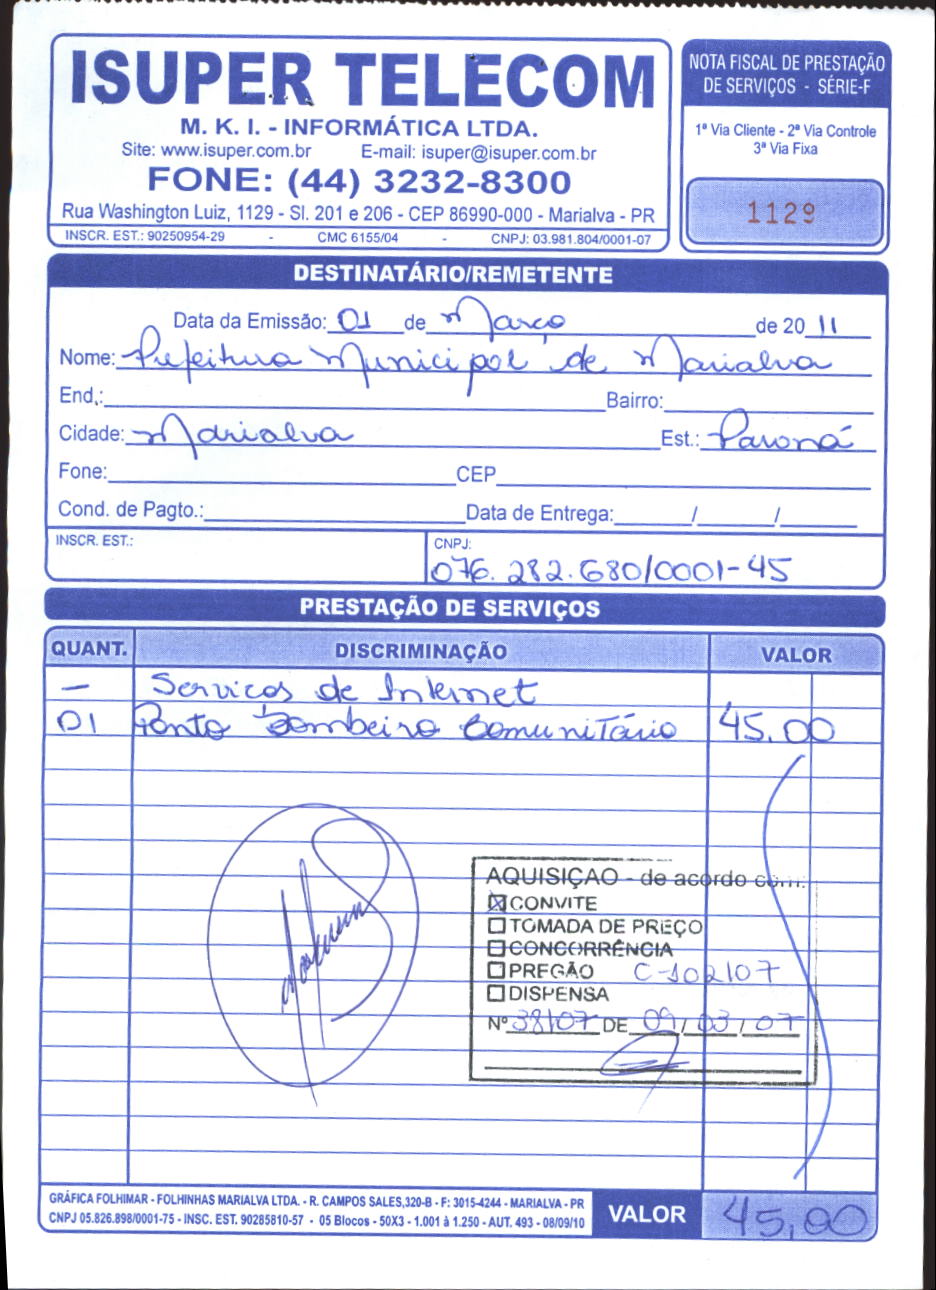 ISUPER TELECOM
M. K. I. - INFORMÁTICA LTDA.
Site: www.isuper.com.br E-mail: isuper@isuper.com.br
FONE: (44) 3232-8300
Rua Washington Luiz, 1129 - Sl. 201 e 206 - CEP 86990-000 - Marialva - PR
INSCR. EST.: 90250954-29 - CMC 6155/04 - CNPJ: 03.981.804/0001-07
NOTA FISCAL DE PRESTAÇÃO
DE SERVIÇOS - SÉRIE-F
1ª Via Cliente - 2ª Via Controle
3ª Via Fixa
1129
DESTINATÁRIO/REMETENTE
Data da Emissão: 01 de Março de 2011
Nome: Prefeitura Municipal de Marialva
End.: Bairro:
Cidade: Marialva Est.: Paraná
Fone: CEP
Cond. de Pagto.: Data de Entrega: / /
INSCR. EST.: CNPJ:
076.282.680/0001-45
PRESTAÇÃO DE SERVIÇOS
QUANT. DISCRIMINAÇÃO VALOR
— Serviços de Internet
01 Ponto Bombeiro Comunitário 45,00
AQUISIÇAO - de acordo com:
CONVITE
TOMADA DE PREÇO
CONCORRÊNCIA
PREGÃO C-102107
DISPENSA
Nº 38/07 DE 09/03/07
GRÁFICA FOLHIMAR - FOLHINHAS MARIALVA LTDA. - R. CAMPOS SALES,320-B - F: 3015-4244 - MARIALVA - PR
CNPJ 05.826.898/0001-75 - INSC. EST. 90285810-57 - 05 Blocos - 50X3 - 1.001 à 1.250 - AUT. 493 - 08/09/10
VALOR 45,00